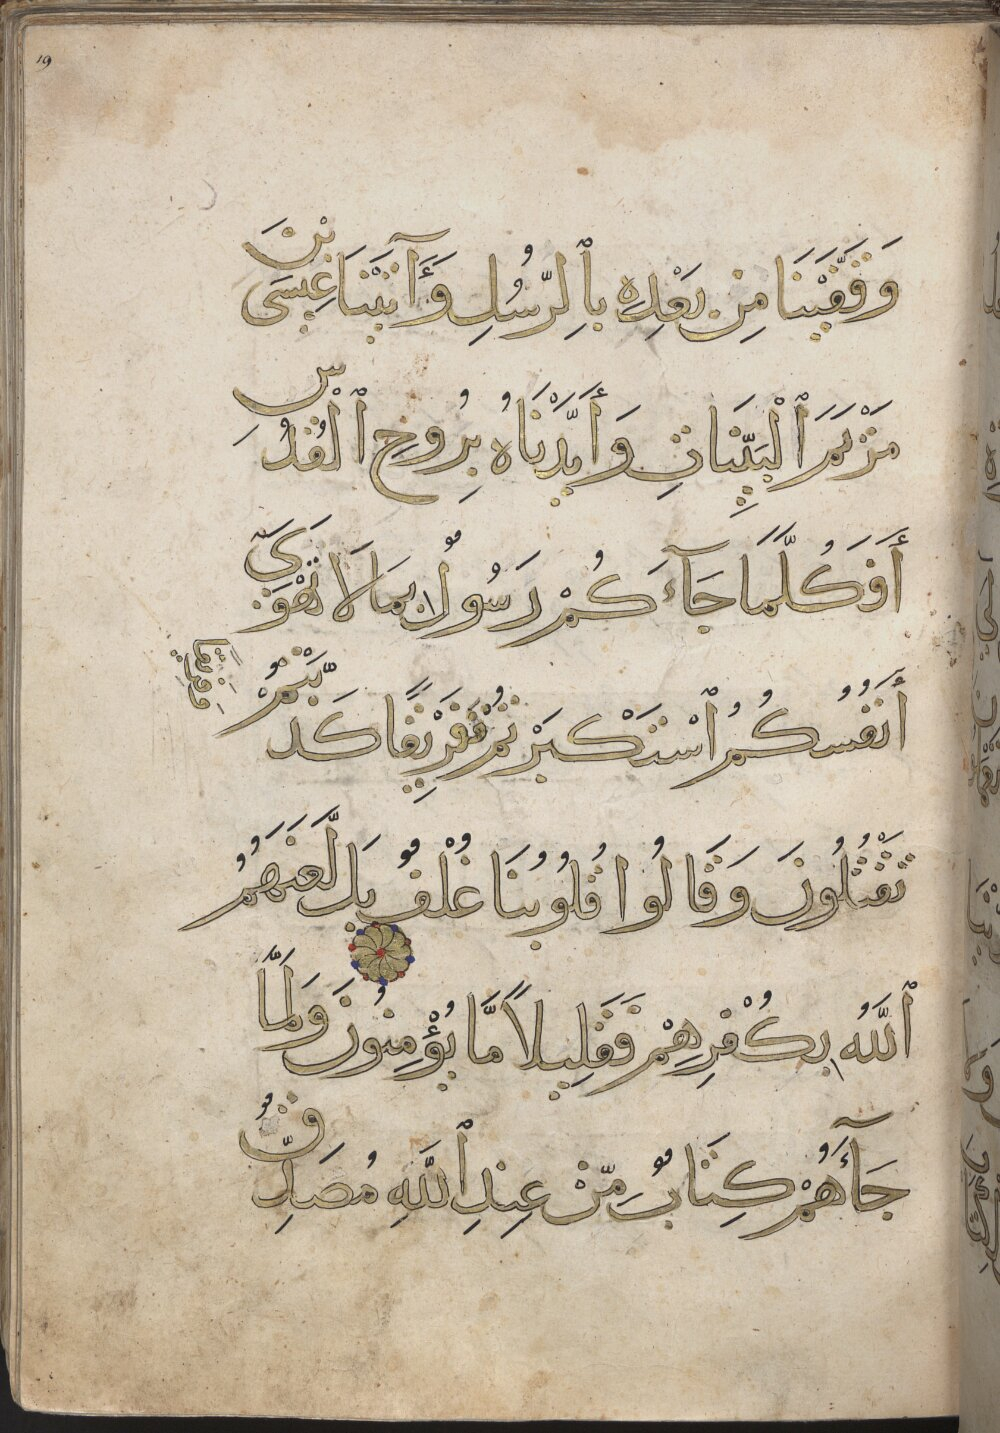 19
وَقَفَّيْنَا مِنْ بَعْدِهِ بِالرُّسُلِ وَآتَيْنَا عِيسَى بْنَ
مَرْيَمَ ٱلْبَيِّنَاتِ وَأَيَّدْنَاهُ بِرُوحِ ٱلْقُدُسِ
أَفَكُلَّمَا جَآءَكُمْ رَسُولٌ بِمَا لَا تَهْوَىٰ
أَنْفُسُكُمُ ٱسْتَكْبَرْتُمْ فَفَرِيقًا كَذَّبْتُمْ
وَفَرِيقًا
تَقْتُلُونَ وَقَالُوا قُلُوبُنَا غُلْفٌ بَل لَّعَنَهُمُ
ٱللَّهُ بِكُفْرِهِمْ فَقَلِيلًا مَّا يُؤْمِنُونَ وَلَمَّا
جَآءَهُمْ كِتَابٌ مِّنْ عِندِ ٱللَّهِ مُصَدِّقٌ